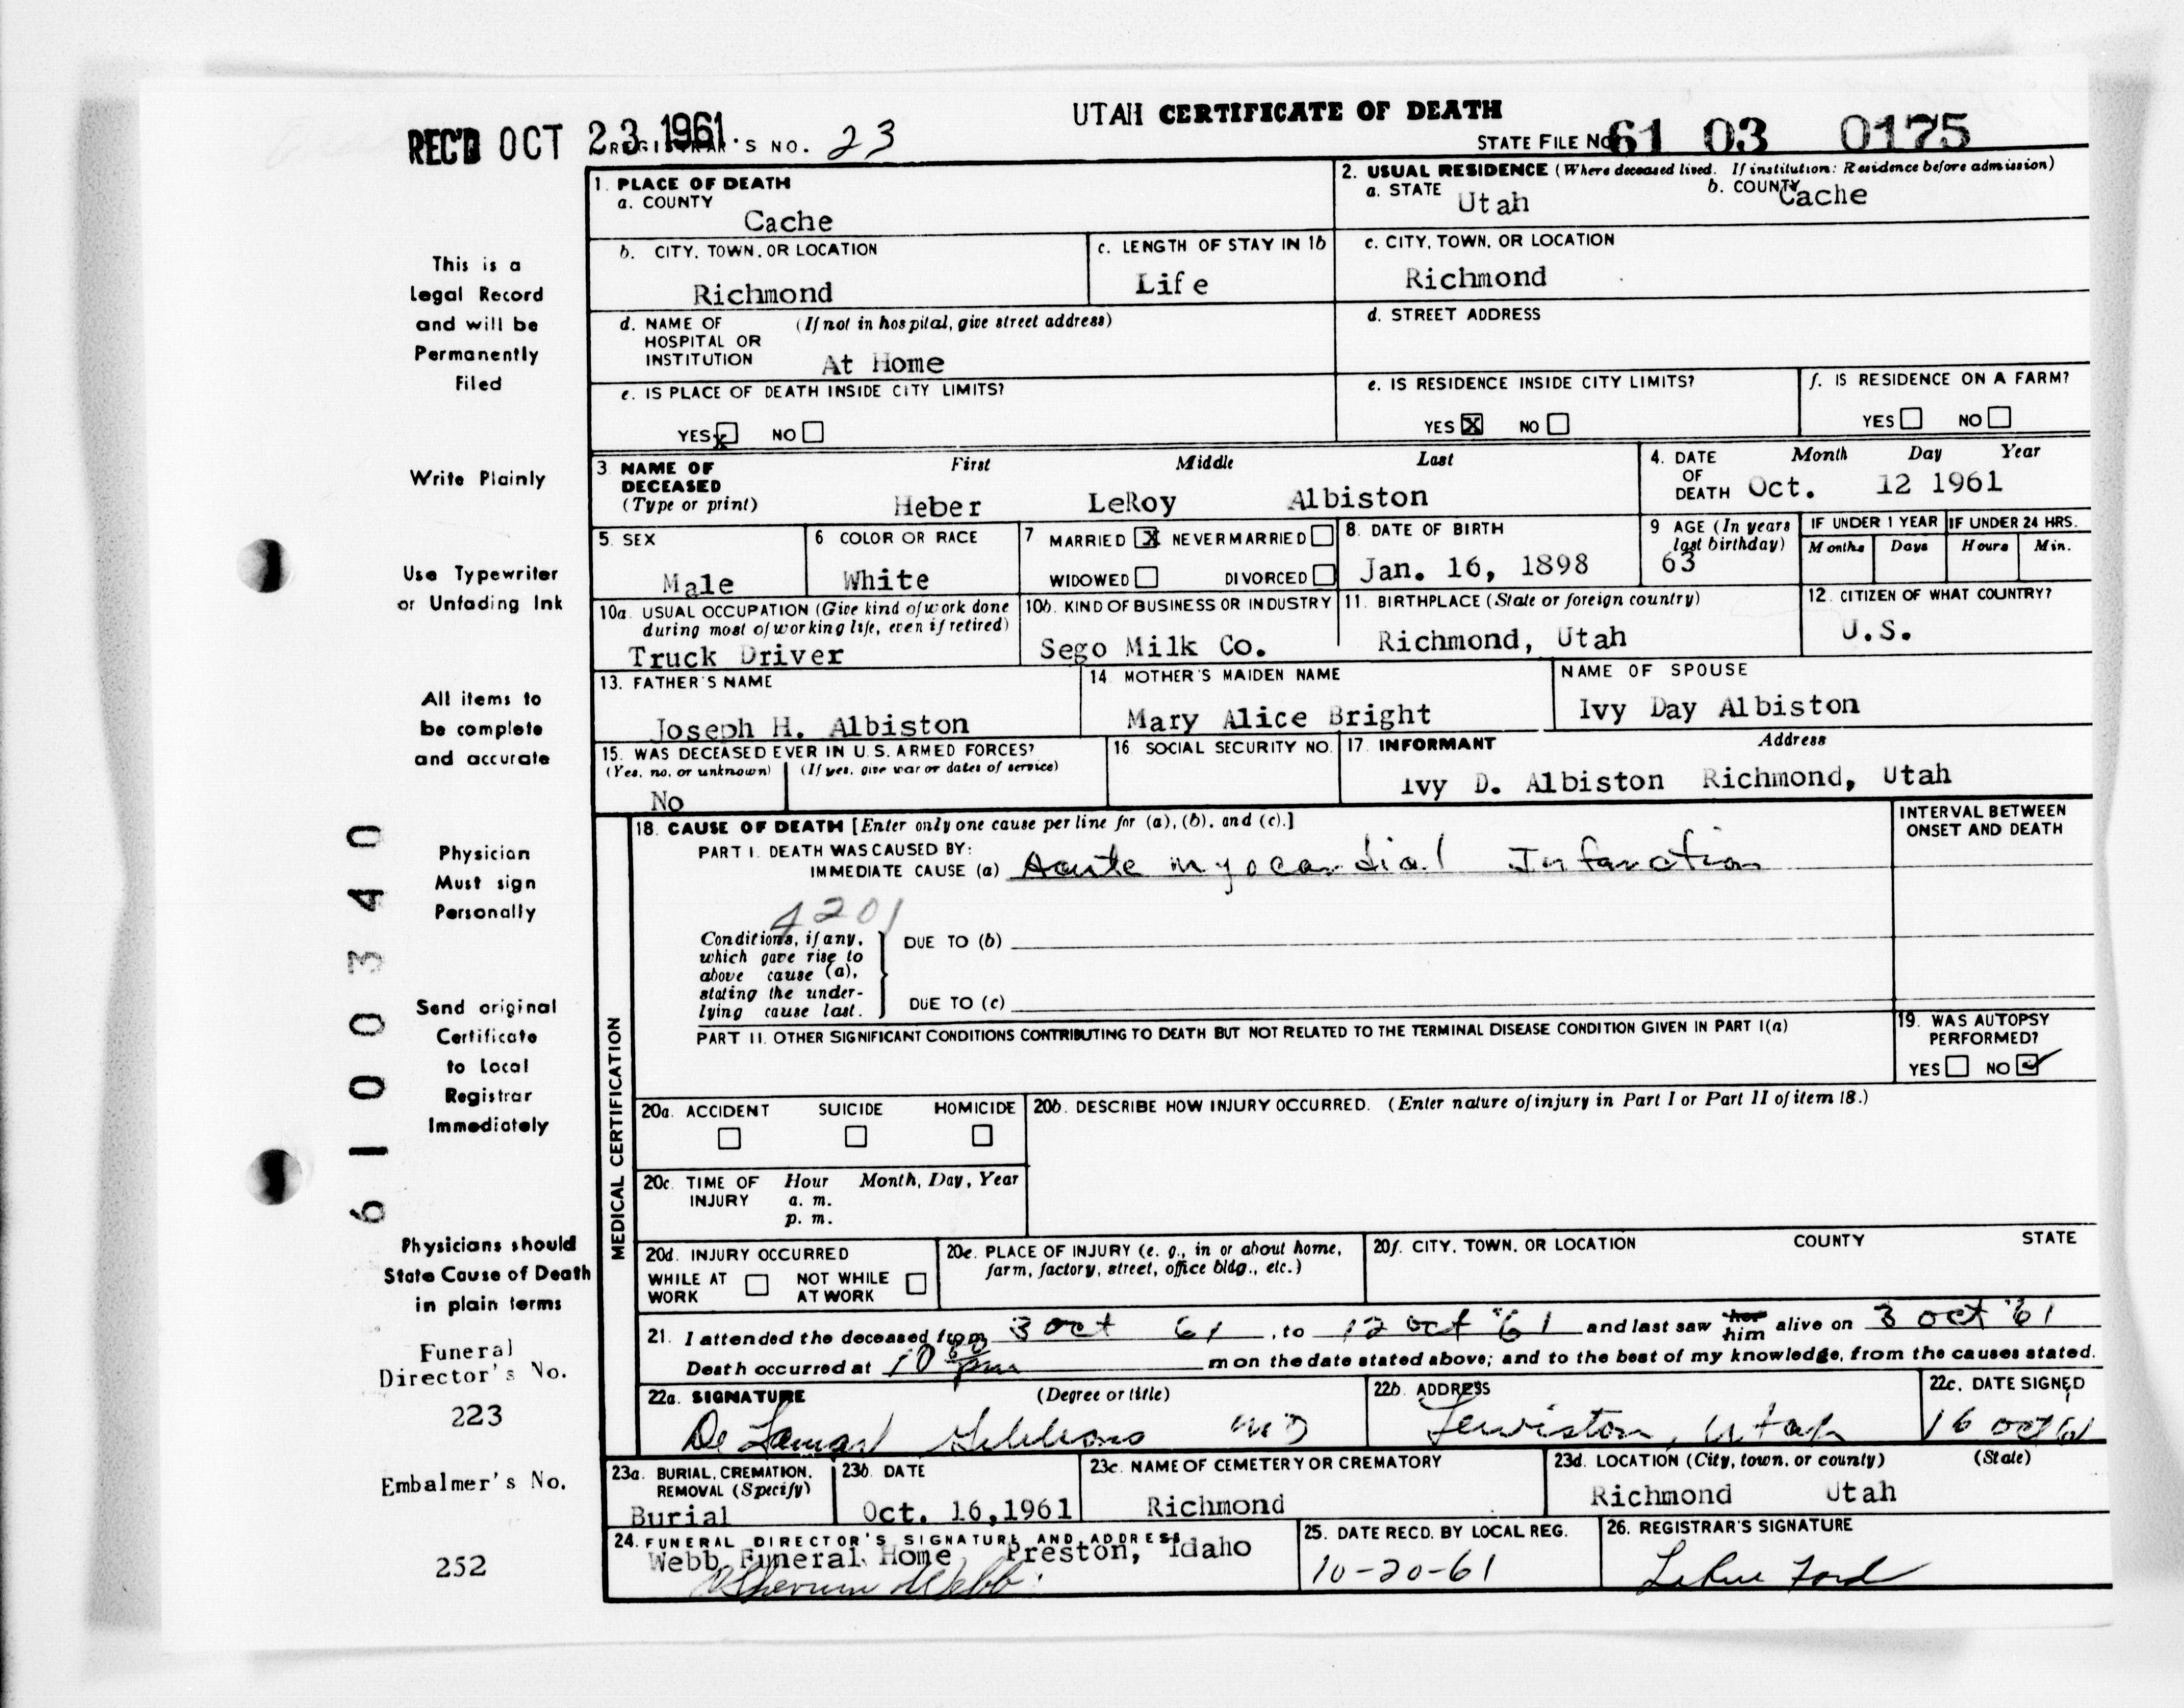 UTAH CERTIFICATE OF DEATH
REC'D OCT 23 1961
REGISTRAR'S NO. 23
STATE FILE NO. 61 03 0175
This is a
Legal Record
and will be
Permanently
Filed
Write Plainly
Use Typewriter
or Unfading Ink
All items to
be complete
and accurate
Physician
Must sign
Personally
Send original
Certificate
to Local
Registrar
Immediately
Physicians should
State Cause of Death
in plain terms
Funeral
Director's No.
223
Embalmer's No.
252
6100340
1. PLACE OF DEATH
a. COUNTY
Cache
2. USUAL RESIDENCE (Where deceased lived. If institution: Residence before admission)
a. STATE Utah
b. COUNTY Cache
b. CITY, TOWN, OR LOCATION
Richmond
c. LENGTH OF STAY IN 1b
Life
c. CITY, TOWN, OR LOCATION
Richmond
d. NAME OF HOSPITAL OR INSTITUTION (If not in hospital, give street address)
At Home
d. STREET ADDRESS
e. IS PLACE OF DEATH INSIDE CITY LIMITS?
YES x NO
e. IS RESIDENCE INSIDE CITY LIMITS?
YES X NO
f. IS RESIDENCE ON A FARM?
YES NO
3. NAME OF DECEASED (Type or print)
First Middle Last
Heber LeRoy Albiston
4. DATE OF DEATH
Month Day Year
Oct. 12 1961
5. SEX
Male
6 COLOR OR RACE
White
7 MARRIED X NEVER MARRIED
WIDOWED DIVORCED
8. DATE OF BIRTH
Jan. 16, 1898
9 AGE (In years last birthday)
63
IF UNDER 1 YEAR
Months Days
IF UNDER 24 HRS.
Hours Min.
10a. USUAL OCCUPATION (Give kind of work done
during most of working life, even if retired)
Truck Driver
10b. KIND OF BUSINESS OR INDUSTRY
Sego Milk Co.
11. BIRTHPLACE (State or foreign country)
Richmond, Utah
12. CITIZEN OF WHAT COUNTRY?
U.S.
13. FATHER'S NAME
Joseph H. Albiston
14. MOTHER'S MAIDEN NAME
Mary Alice Bright
NAME OF SPOUSE
Ivy Day Albiston
15. WAS DECEASED EVER IN U.S. ARMED FORCES?
(Yes, no, or unknown) (If yes, give war or dates of service)
No
16 SOCIAL SECURITY NO.
17. INFORMANT Address
Ivy D. Albiston Richmond, Utah
MEDICAL CERTIFICATION
18. CAUSE OF DEATH [Enter only one cause per line for (a), (b), and (c).]
INTERVAL BETWEEN
ONSET AND DEATH
PART I. DEATH WAS CAUSED BY:
IMMEDIATE CAUSE (a) Acute myocardial Infarction
4201
Conditions, if any,
which gave rise to
above cause (a),
stating the under-
lying cause last.
DUE TO (b)
DUE TO (c)
PART II. OTHER SIGNIFICANT CONDITIONS CONTRIBUTING TO DEATH BUT NOT RELATED TO THE TERMINAL DISEASE CONDITION GIVEN IN PART I(a)
19. WAS AUTOPSY
PERFORMED?
YES NO ✓
20a. ACCIDENT SUICIDE HOMICIDE
20b. DESCRIBE HOW INJURY OCCURRED. (Enter nature of injury in Part I or Part II of item 18.)
20c. TIME OF INJURY
Hour Month, Day, Year
a. m.
p. m.
20d. INJURY OCCURRED
WHILE AT WORK NOT WHILE AT WORK
20e. PLACE OF INJURY (e. g., in or about home,
farm, factory, street, office bldg., etc.)
20f. CITY, TOWN, OR LOCATION COUNTY STATE
21. I attended the deceased from 3 oct 61, to 12 oct '61 and last saw her him alive on 3 oct '61
Death occurred at 10 pm m on the date stated above; and to the best of my knowledge, from the causes stated.
22a. SIGNATURE (Degree or title)
De Lamar Gibbons MD
22b. ADDRESS
Lewiston, Utah
22c. DATE SIGNED
16 oct 61
23a. BURIAL, CREMATION,
REMOVAL (Specify)
Burial
23b. DATE
Oct. 16, 1961
23c. NAME OF CEMETERY OR CREMATORY
Richmond
23d. LOCATION (City, town, or county) (State)
Richmond Utah
24. FUNERAL DIRECTOR'S SIGNATURE AND ADDRESS
Webb Funeral Home, Preston, Idaho
Webb
25. DATE RECD. BY LOCAL REG.
10-20-61
26. REGISTRAR'S SIGNATURE
LaRue Ford